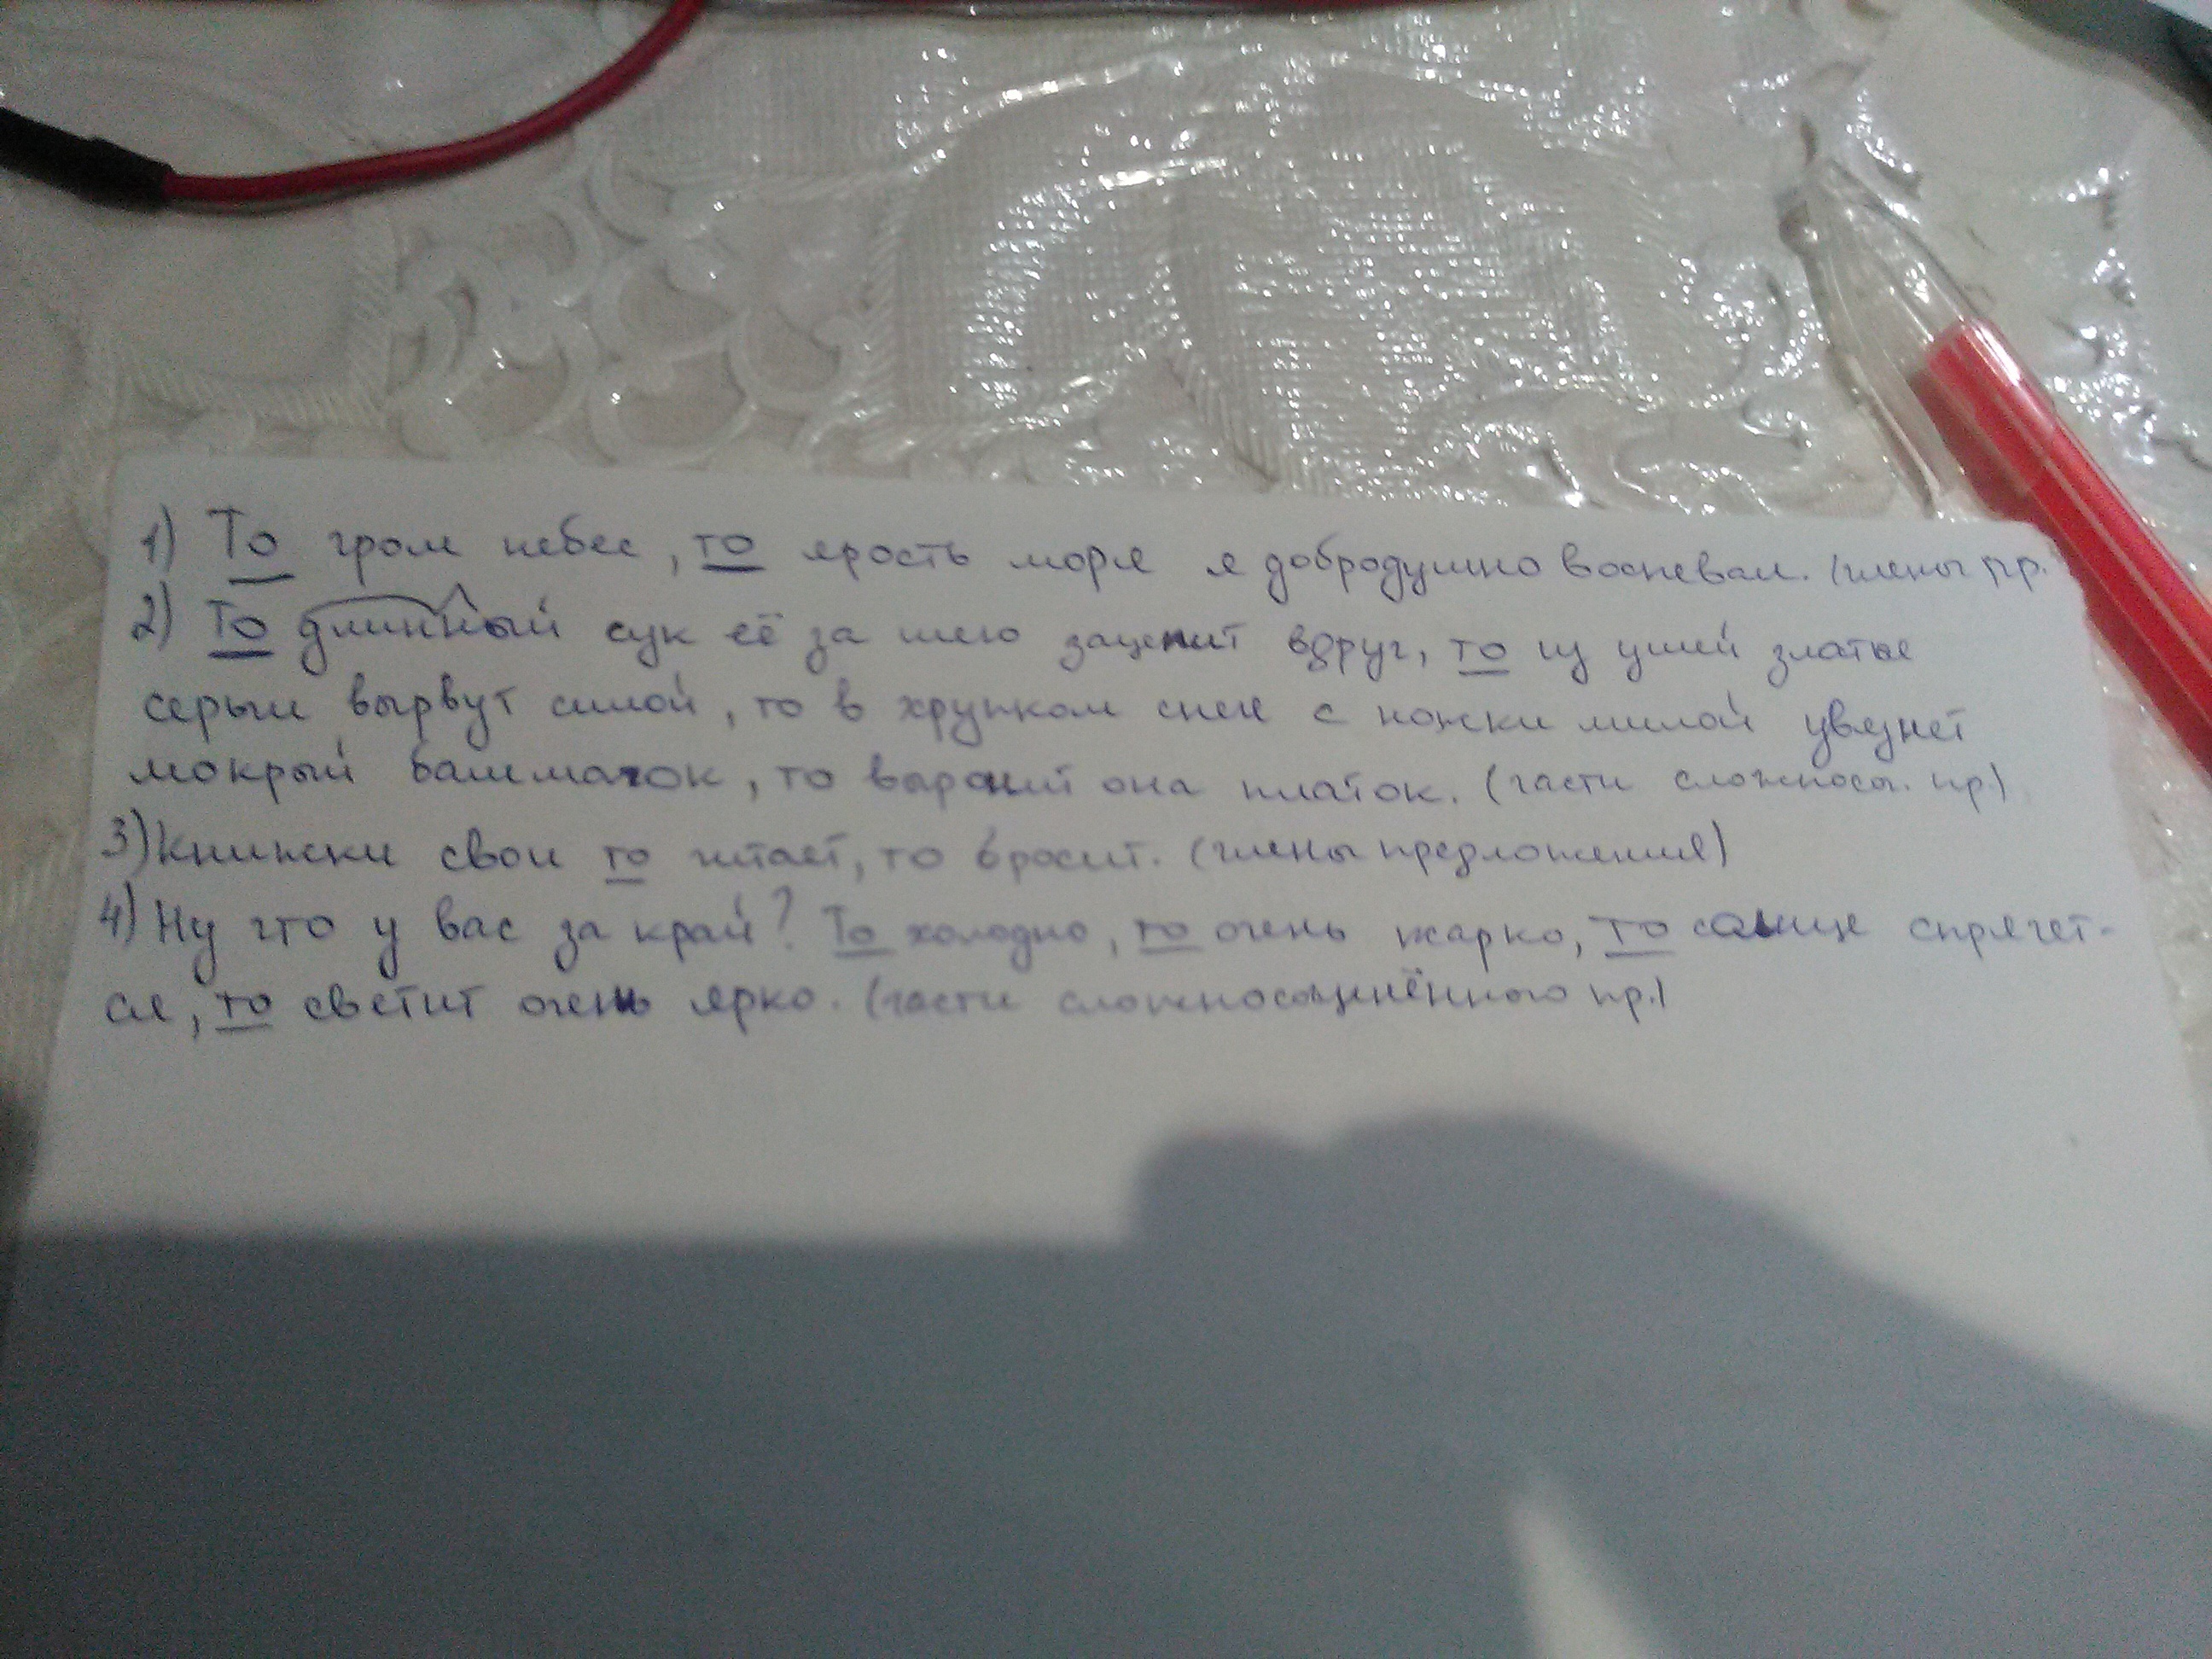 1) То гром небес, то ярость моря я добродушно воспевал. (члены пр.
2) То длинный сук её за шею зацепит вдруг, то из ушей златые
серьги вырвут силой, то в хрупком снеге с ножки милой увязнет
мокрый башмачок, то выронит она платок. (части сложносоч. пр.)
3) Книжки свои то читает, то бросит. (члены предложения)
4) Ну что у вас за край? То холодно, то очень жарко, то солнце спрячет-
ся, то светит очень ярко. (части сложносочинённого пр.)